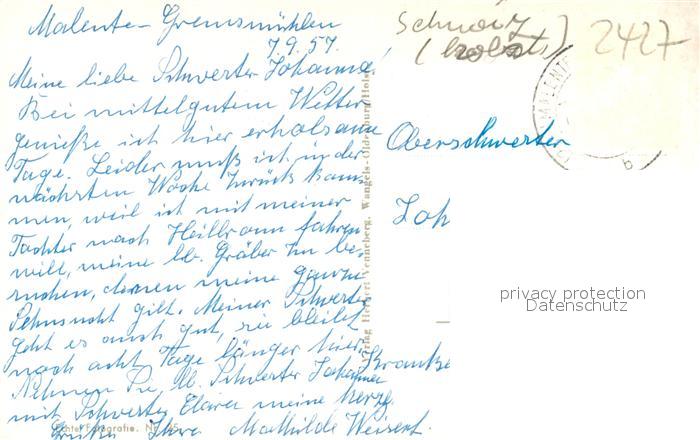 Malente-Gremsmühlen
7.9.57.
Meine liebe Schwester Johanna!
Bei mittelgutem Wetter
genieße ich hier erholsame
Tage. Leider muß ich in der
nächsten Woche zurück kom-
men, weil ich mit meiner
Tochter nach Heilbronn fahren
will, meine lb. Gräber zu be-
suchen, denen meine ganze
Sehnsucht gilt. Meiner Schwester
geht es auch gut, sie bleibt
noch acht Tage länger hier.
Nehmen Sie, lb. Schwester Johanna
mit Schwester Clara meine herzl.
Grüße Ihre Mathilde Weisert.
Echte Fotografie. Nr.
Verlag Herbert Venneberg, Wangels-Oldenburg/Holst.
Schwarz
2427
MALENTE
b
Oberschwester
Joh
Kranke
privacy protection
Datenschutz